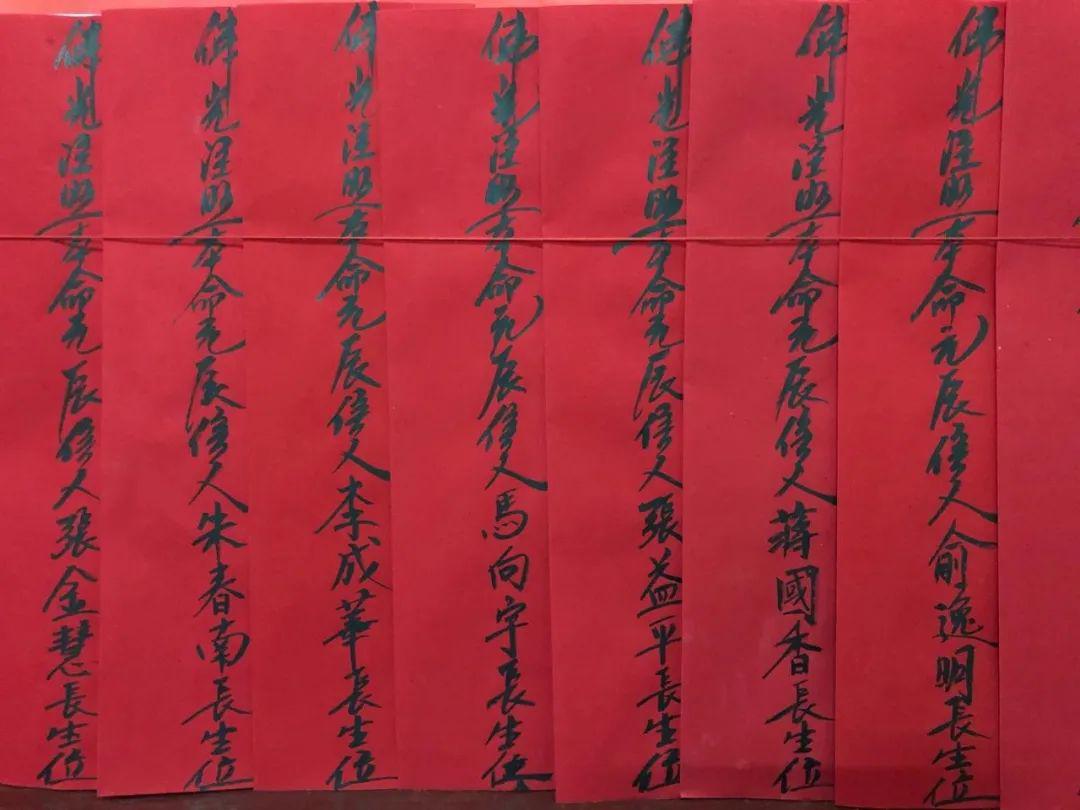 佛光注照本命元辰信人俞逸明長生位
佛光注照本命元辰信人蔣國香長生位
佛光注照本命元辰信人張益平長生位
佛光注照本命元辰信人馬向宇長生位
佛光注照本命元辰信人李成華長生位
佛光注照本命元辰信人朱春南長生位
佛光注照本命元辰信人張金慧長生位